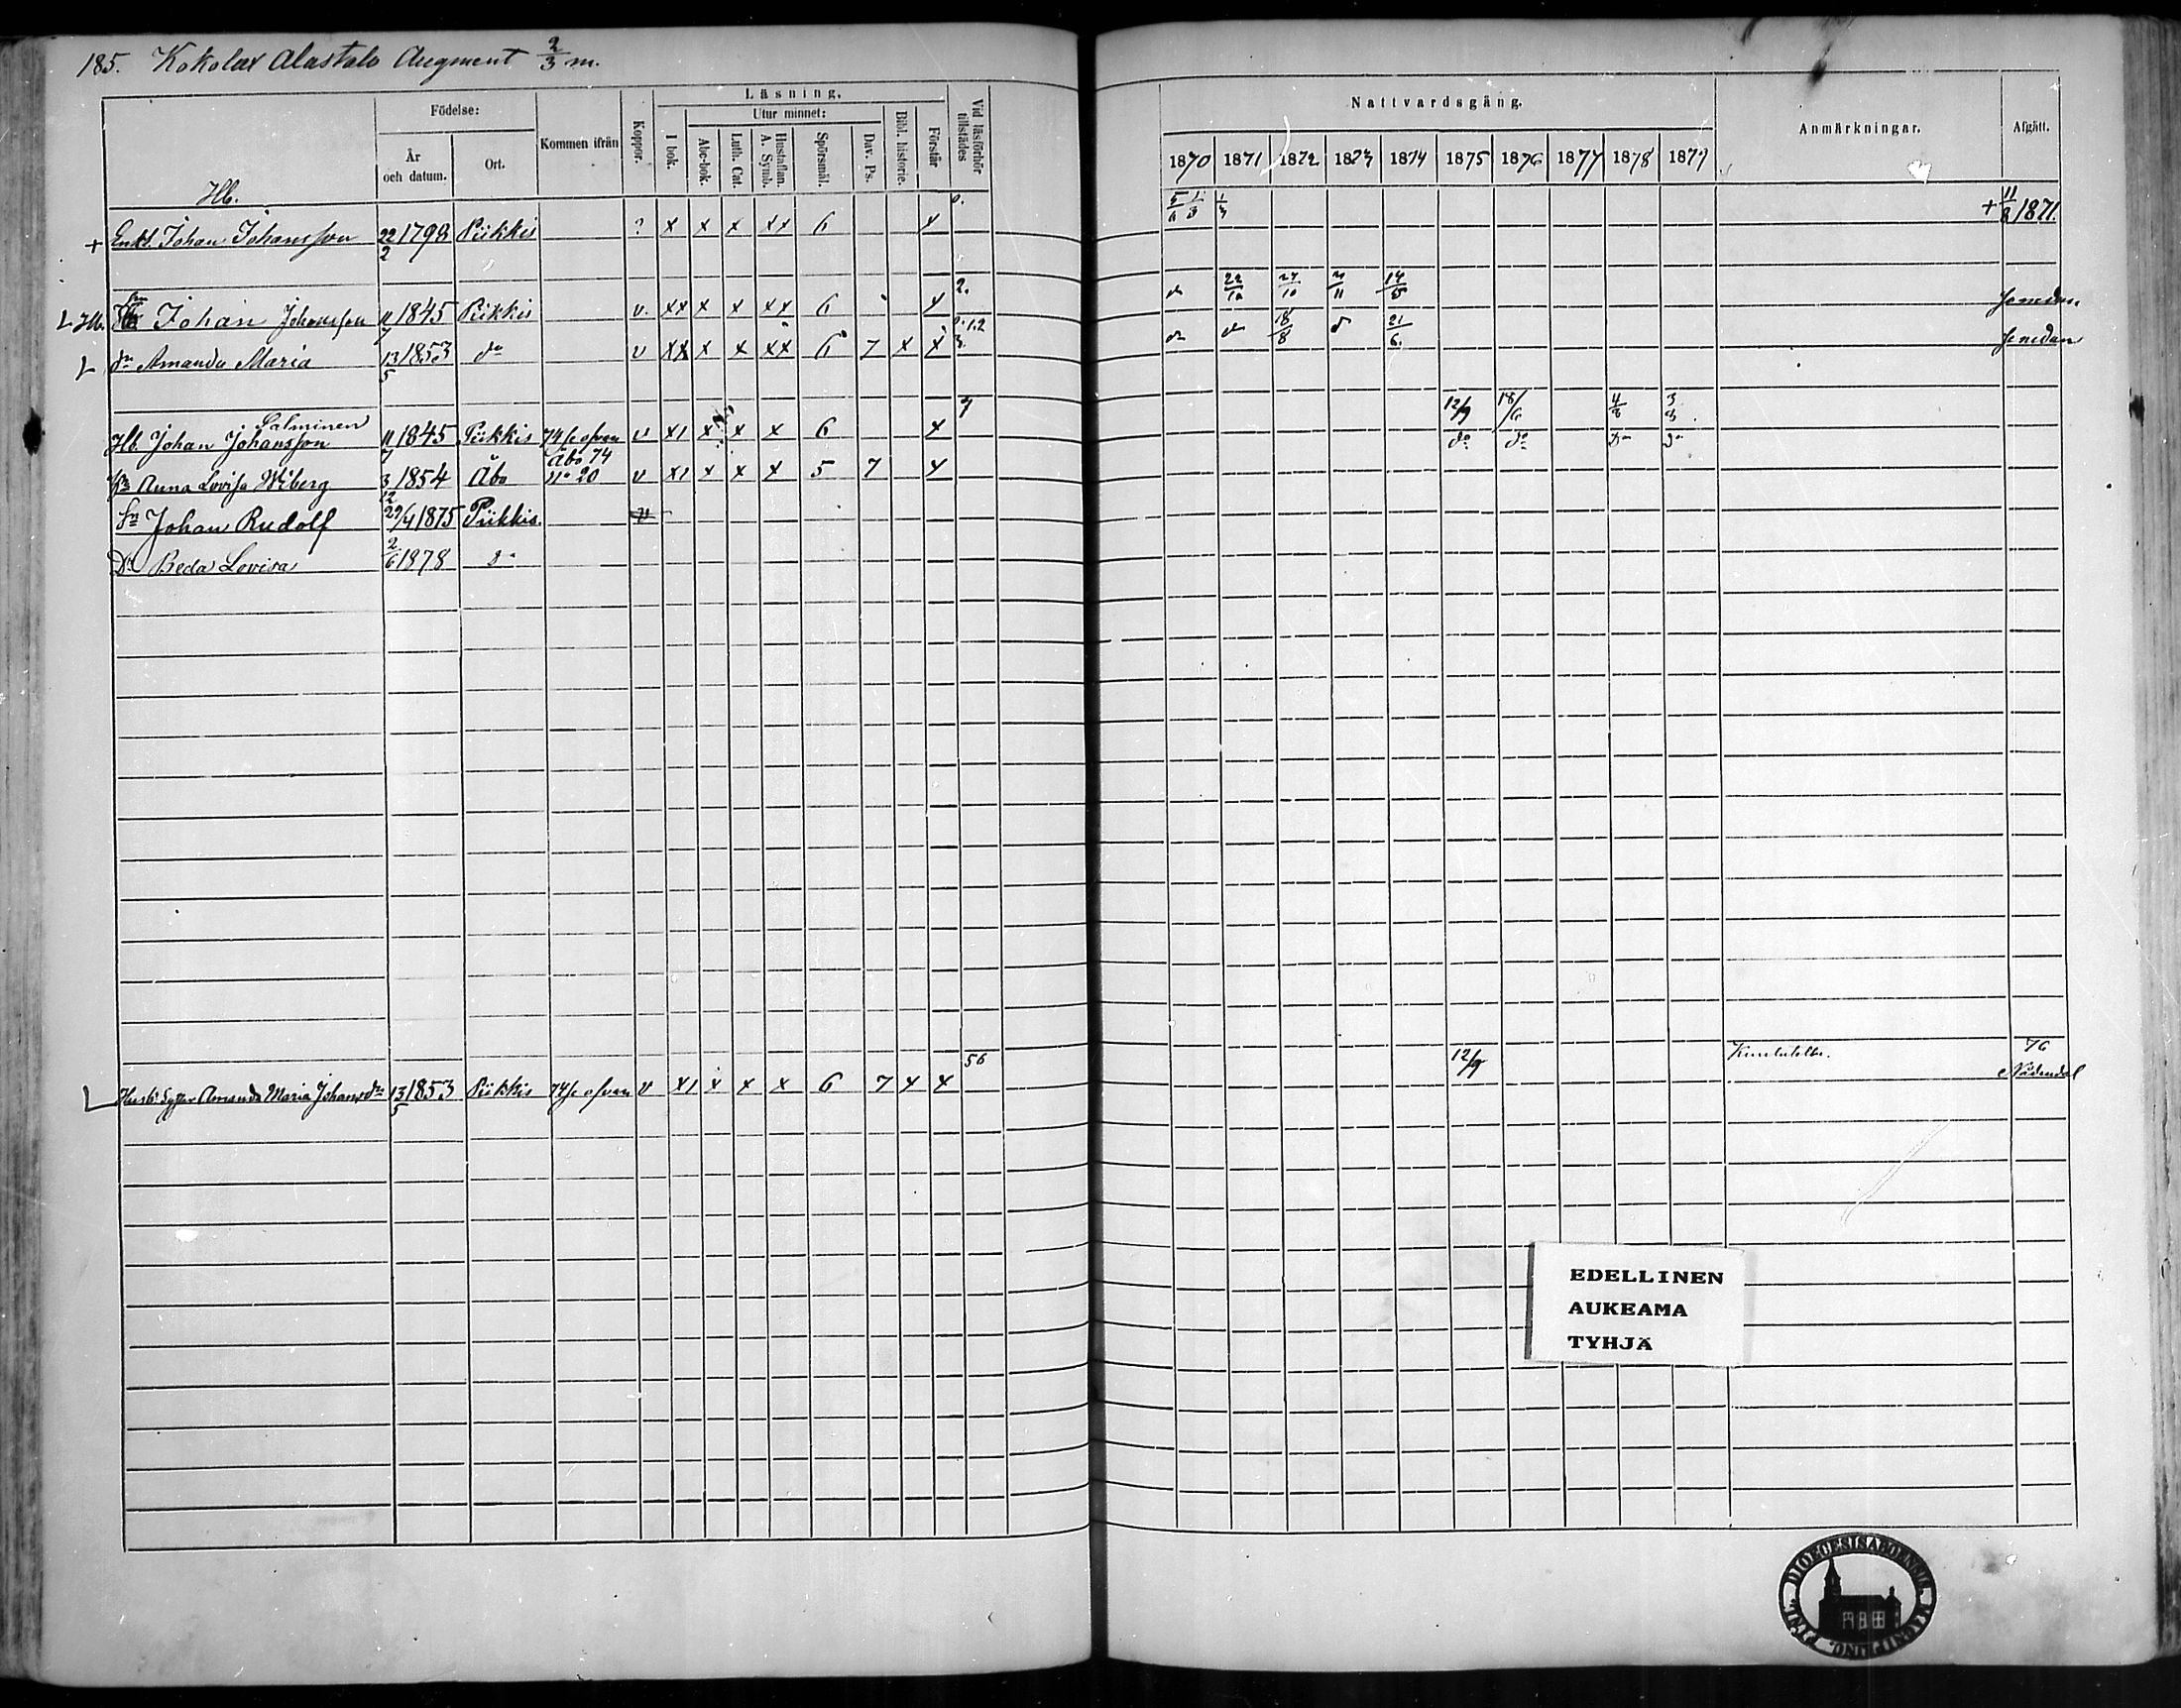 185. Kokolax Alastalo Augment 2/3 m.
Födelse: Kommen ifrån Koppor. Läsning. Vid läsförhör tillstädes
År och datum. Ort. I bok. Utur minnet: Bibl. historie. Förstår
Abc-bok. Luth. Cat. Hustaflan. A. Symb. Spörsmål. Dav. Ps.
Nattvardsgång. Anmärkningar. Afgått.
1870 1871 1872 1873 1874 1875 1876 1877 1878 1879
Hb.
+ Enkl. Johan Johansson 22/2 1798 Piikkis ? x x x xx 6 x 5/6 1/3 1/3 + 11/8 1871.
L Hb. Johan Johansson 11/7 1845 Piikkis v. xx x x xx 6 x 2. do 22/10 27/10 2/11 14/5 se nedan
L dr Amanda Maria 13/5 1853 do v xx x x xx 6 7 x x do do 18/8 do 21/6 se nedan
Salminen
Hb. Johan Johansson 11/7 1845 Piikkis 74 se ofvan v x1 x x x 6 x 7 12/9 18/6 4/3 3/3
Hu Anna Lovisa Wiberg 3/12 1854 Åbo Åbo 74 No 20 v x1 x x x 5 7 x do do do do
Sn Johan Rudolf 29/4 1875 Piikkis. v
Dr Beda Lovisa 2/6 1878 do
L Husb. Syster Amanda Maria Johansdr 13/5 1853 Piikkis 74 se ofvan v x1 x x x 6 7 x x 56 12/9 76 Nådendal
EDELLINEN
AUKEAMA
TYHJÄ